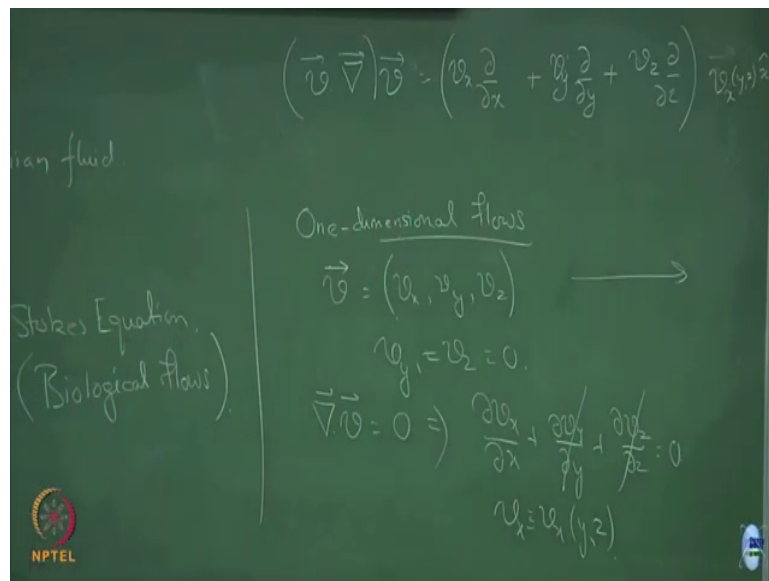 (v⃗ ∇⃗)v⃗ = (vₓ ∂/∂x + v_y ∂/∂y + v_z ∂/∂z) v⃗ₓ(y,z)x̂
ian fluid.
Stokes Equation.
(Biological flows)
One-dimensional flows
v⃗ = (vₓ, v_y, v_z) →
v_y = v_z = 0.
∇⃗.v⃗ = 0 ⇒ ∂vₓ/∂x + ∂v_y/∂y + ∂v_z/∂z = 0
vₓ ≡ vₓ(y,z)
NPTEL